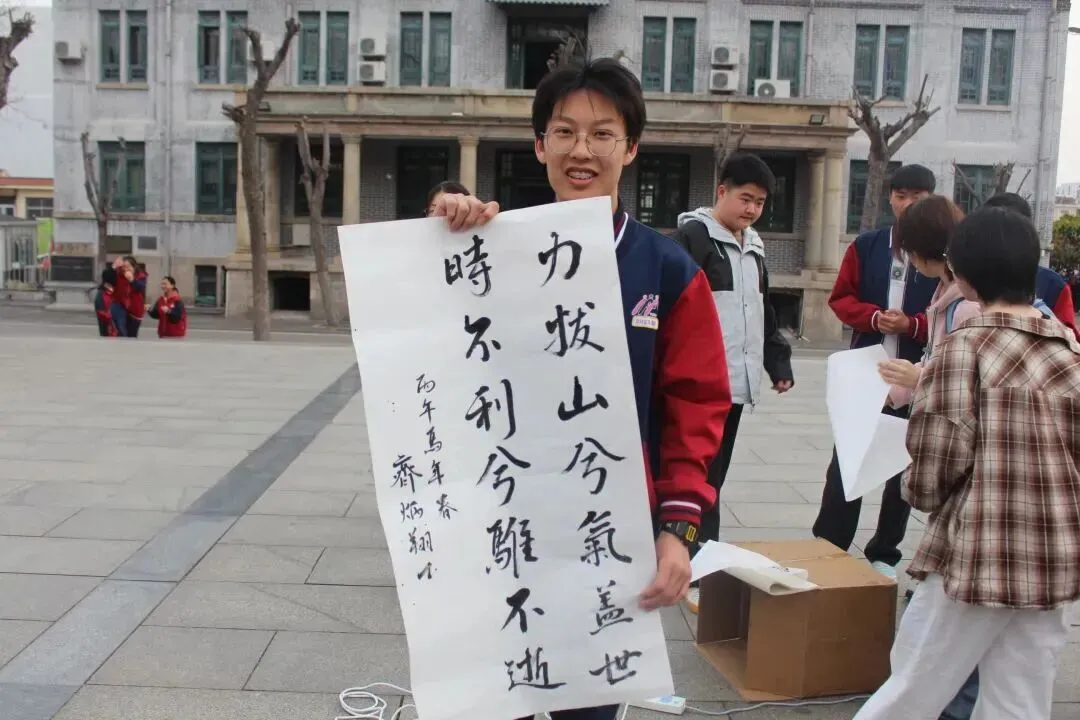 力拔山兮氣盖世
時不利兮騅不逝
丙午馬年春
齊炳翔书